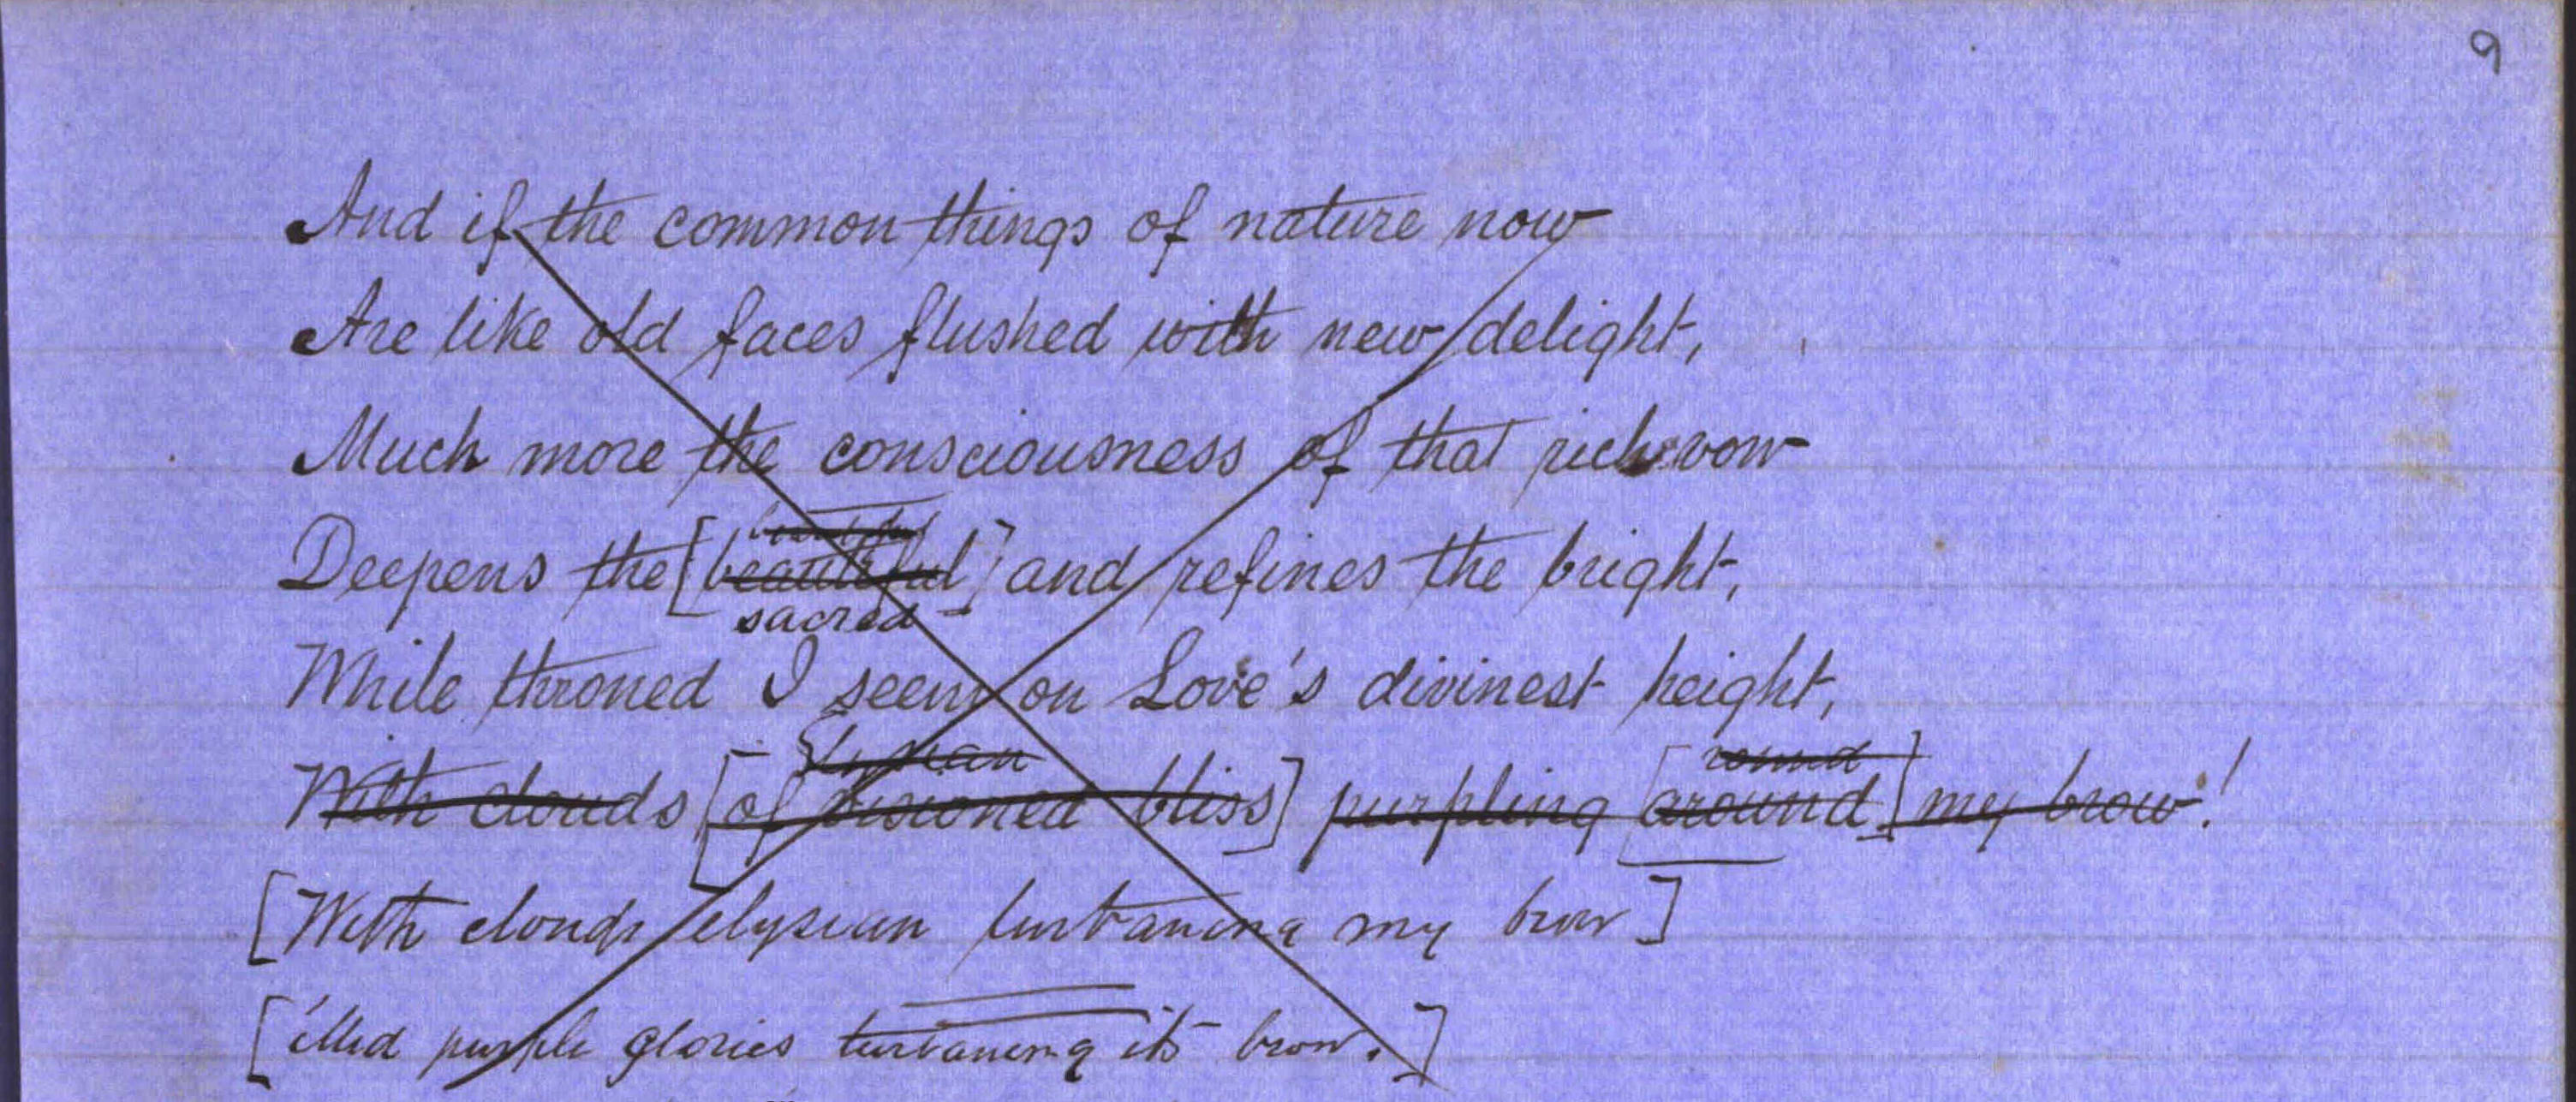 9
And if the common things of nature now
Are like old faces flushed with new delight,
Much more the consciousness of that rich vow
beautiful
Deepens the [beautiful] and refines the bright,
sacred
While throned I seem on Love's divinest height,
Elysian round
With clouds [of visioned bliss] purpling [around] my brow!
[With clouds elysian turbaning my brow]
['Mid purple glories turbaning its brow.]